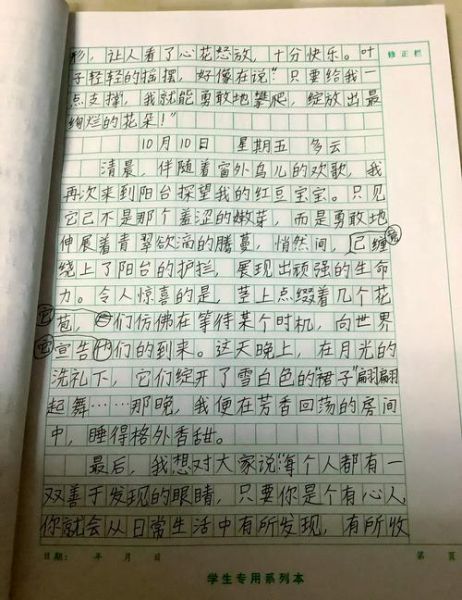 修正栏
杉，让人看了心花怒放，十分快乐。叶
子轻轻的摇摆，好像在说"只要给我一
点支撑，我就能勇敢地攀爬，绽放出最
绚烂的花朵！"
10月10日 星期五 多云
清晨，伴随着窗外鸟儿的欢歌，我
再次来到阳台探望我的红豆宝宝。只见
它已不是那个羞涩的嫩芽，而是勇敢地
伸展着青翠欲滴的腾蔓，悄然间，已缠
绕上了阳台的护拦，展现出顽强的生命
力。令人惊喜的是，茎上点缀着几个花
苞，它们仿佛在等待某个时机，向世界
宣告它们的到来。这天晚上，在月光的
洗礼下，它们绽开了雪白色的"裙子"翩翩
起舞……那晚，我便在芳香回荡的房间
中，睡得格外香甜。
最后，我想对大家说：每个人都有一
双善于发现的眼睛，只要你是个有心人，
你就会从日常生活中有所发现，有所收
日期： 年 月 日 第 页
学生专用系列本